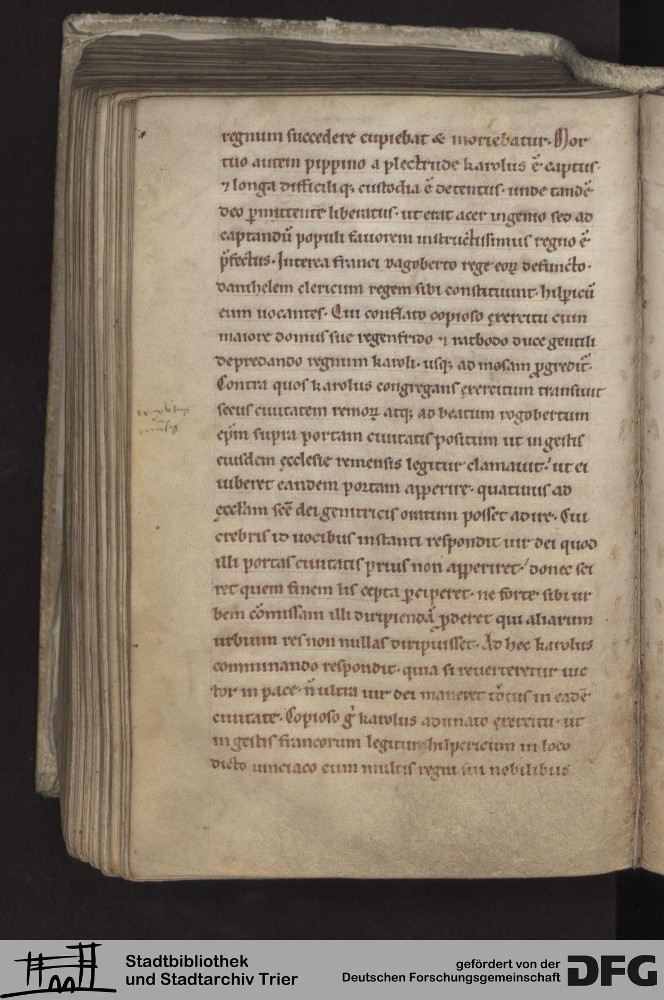 regnum succedere cupiebat & moriebatur. Mor
tuo autem pippino a plectrude karolus ē captus.
⁊ longa difficiliq; custodia ē detentus. unde tandē
deo ꝑmittente liberatus. ut erat acer ingenio sed ad
captandū populi fauorem instructissimus regno ē
p̄fectus. Interea franci dagoberto rege eoꝝ defuncto.
danihelem clericum regem sibi constituunt. hilpricū
eum uocantes. Qui conflato copioso exercitu cum
maiore domus sue regenfrido ⁊ ratbodo duce gentili
depredando regnum karoli. usq; ad mosam ꝓgredit̄.
Contra quos karolus congregans exercitum transiuit
secus ciuitatem remoꝝ atq; ad beatum rogobertum
ep̄m supra portam ciuitatis positum ut in gestis
eiusdem ęcclesie remensis legitur clamauit. ut ei
iuberet eandem portam apperire. quatinus ad
ęccl̄am sc̄e dei genitricis oratum posset adire. Cui
crebris id uocibus instanti respondit uir dei quod
illi portas ciuitatis prius non apperiret. donec sci
ret quem finem lis cepta ꝑciperet. ne forte sibi ur
bem cōmissam illi diripiendā ꝓderet qui aliarum
urbium res non nullas diripuisset. Ad hec karolus
comminando respondit. quia si reuerteretur uic
tor in pace. n̄ ultra uir dei maneret totus in eadē
ciuitate. Copioso g̊ karolus adunato exercitu. ut
in gestis francorum legitur hilpericum in loco
dicto uinciaco cum multis regni sui nobilibus
Stadtbibliothek
und Stadtarchiv Trier
gefördert von der
Deutschen Forschungsgemeinschaft
DFG